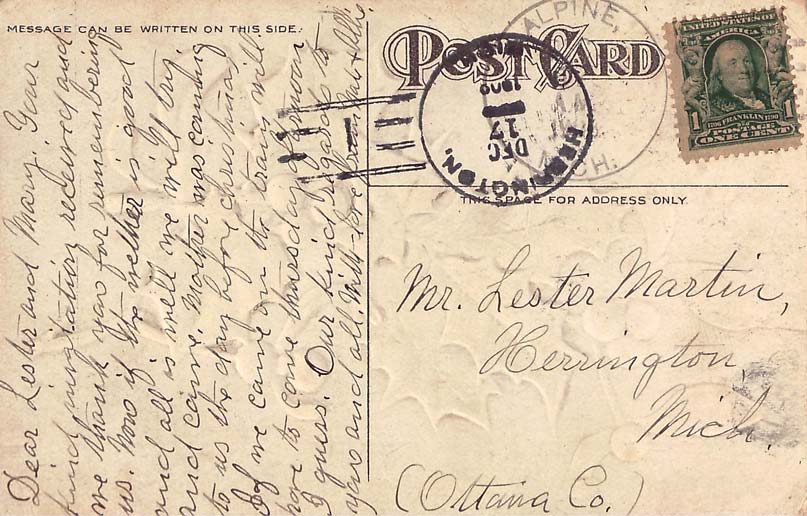 MESSAGE CAN BE WRITTEN ON THIS SIDE.
POST CARD
ALPINE,
MICH.
HERRINGTON,
DEC
17
1908
UNITED STATES OF
AMERICA
1 1706 FRANKLIN 1790 1
POSTAGE
ONE CENT
THIS SPACE FOR ADDRESS ONLY.
Mr. Lester Martin,
Herrington,
Mich.
(Ottawa Co.)
Dear Lester and Mary. Your
kind invatation received and
we thank you for remembering
us. Now if the wether is good
and all is well we will try
and came. Mother was coming
to us the day before christmas
If we came on the train will
have to come thursday afternoon
I guess. Our kind regards to
you and all.